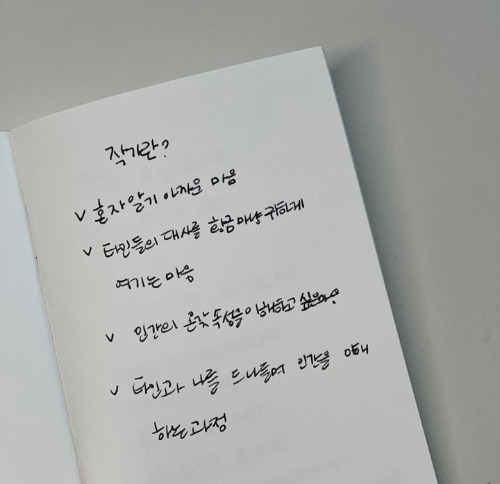 작가란?
v 혼자 알기 아까운 마음
v 타인들의 대사를 황금마냥 귀하게
여기는 마음
v 인간의 온갖 속성을 이해하고
v 타인과 나를 드나들며 인간을 이해
하는 과정